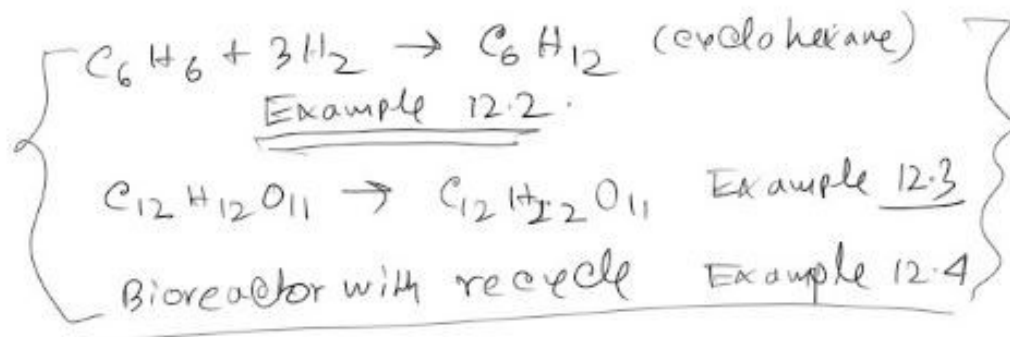 C₆H₆ + 3H₂ → C₆H₁₂ (cyclohexane)
Example 12.2.
C₁₂H₁₂O₁₁ → C₁₂H₂₂O₁₁ Example 12.3
Bioreactor with recycle Example 12.4